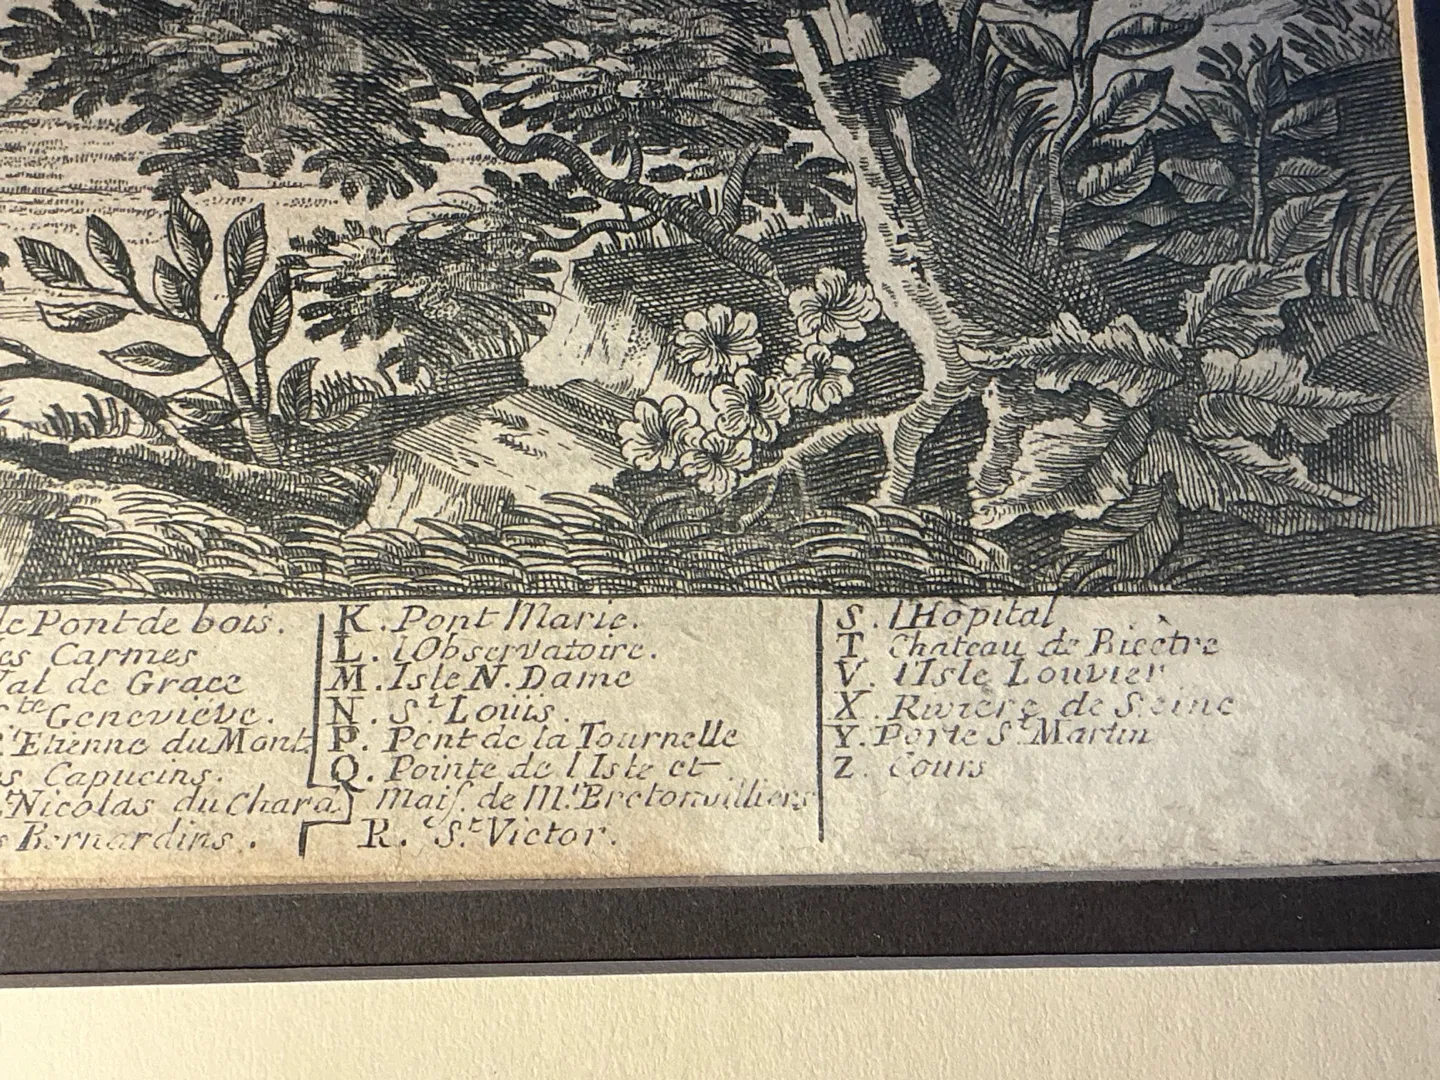 le Pont de bois.
es Carmes
Val de Grace
Ste Genevieve.
St Etienne du Mont
s Capucins.
St Nicolas du Chard.
s Bernardins.
K. Pont Marie.
L. l'Observatoire.
M. Isle N. Dame
N. St Loüis.
P. Pont de la Tournelle
Q. Pointe de l'Isle et
Maiſ. de Mr Bretonvilliers
R. St Victor.
S. l'Hôpital
T Chateau de Bicètre
V. l'Isle Louvier
X. Riviere de Seine
Y. Porte St Martin
Z. Cours